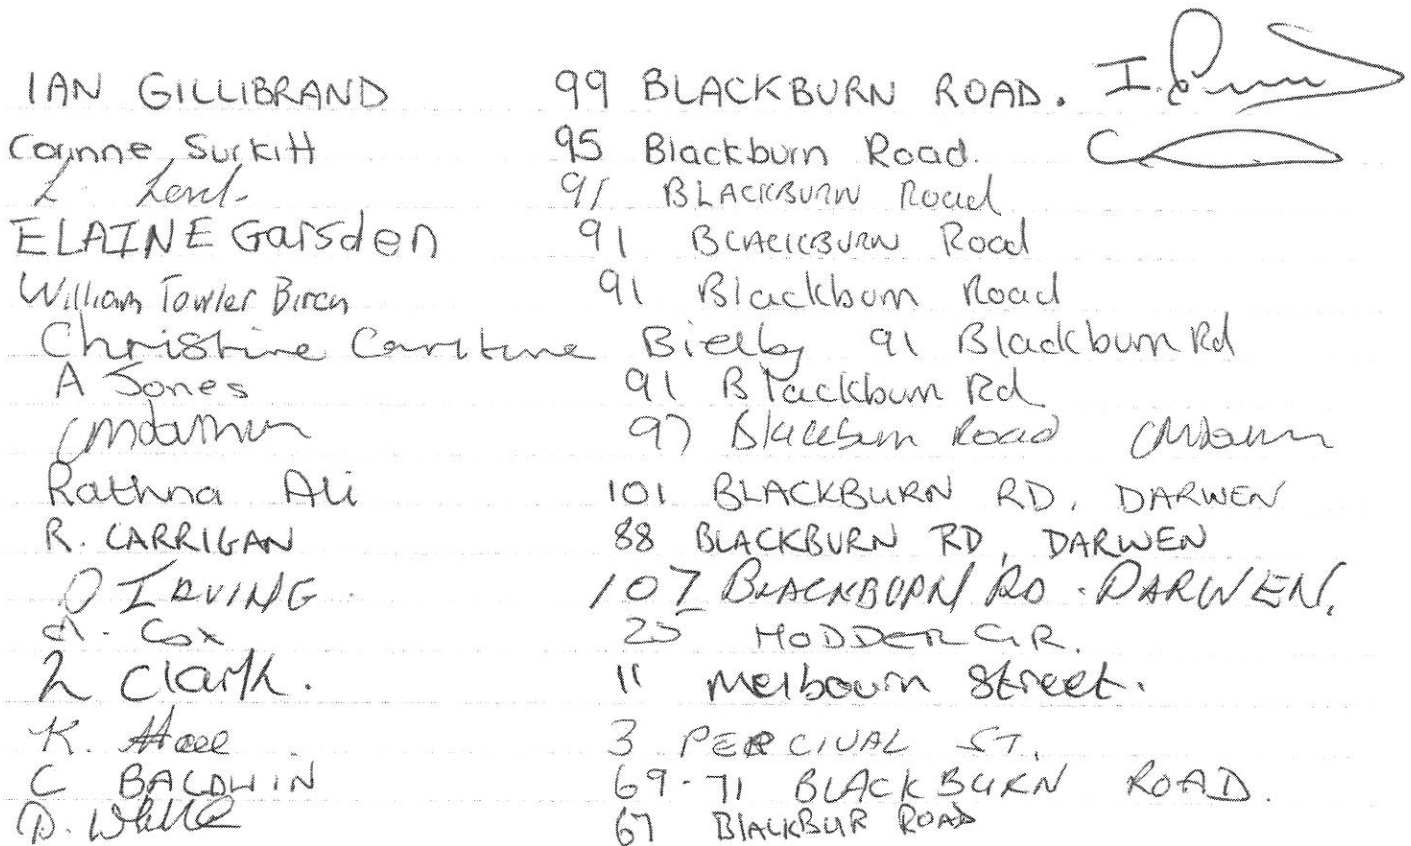 IAN GILLIBRAND 99 BLACKBURN ROAD.
Corinne Surkitt 95 Blackburn Road.
91 BLACKBURN Road
ELAINE Garsden 91 BLACKBURN Road
William Towler Birch 91 Blackburn Road
Christine Bielby 91 Blackburn Rd
A Jones 91 Blackburn Rd
97 Blackburn Road
Rathna Ali 101 BLACKBURN RD, DARWEN
R. CARRIGAN 88 BLACKBURN RD, DARWEN
D IRVING. 107 BLACKBURN RD. DARWEN.
Cox HODDER GR.
Clark. 11 Melbourn Street.
K. 3 PERCIVAL ST.
C BALDWIN 69-71 BLACKBURN ROAD.
D. 67 BLACKBUR ROAD